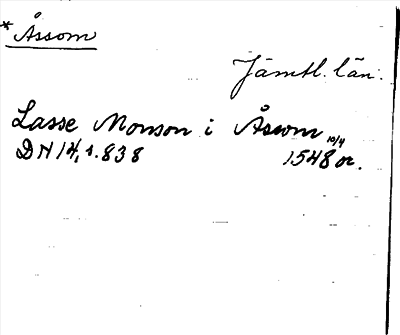 * Åssom
Jämtl. län.
Lasse Monson i Åsom 10/4
DN 14, s. 838 1548 or.